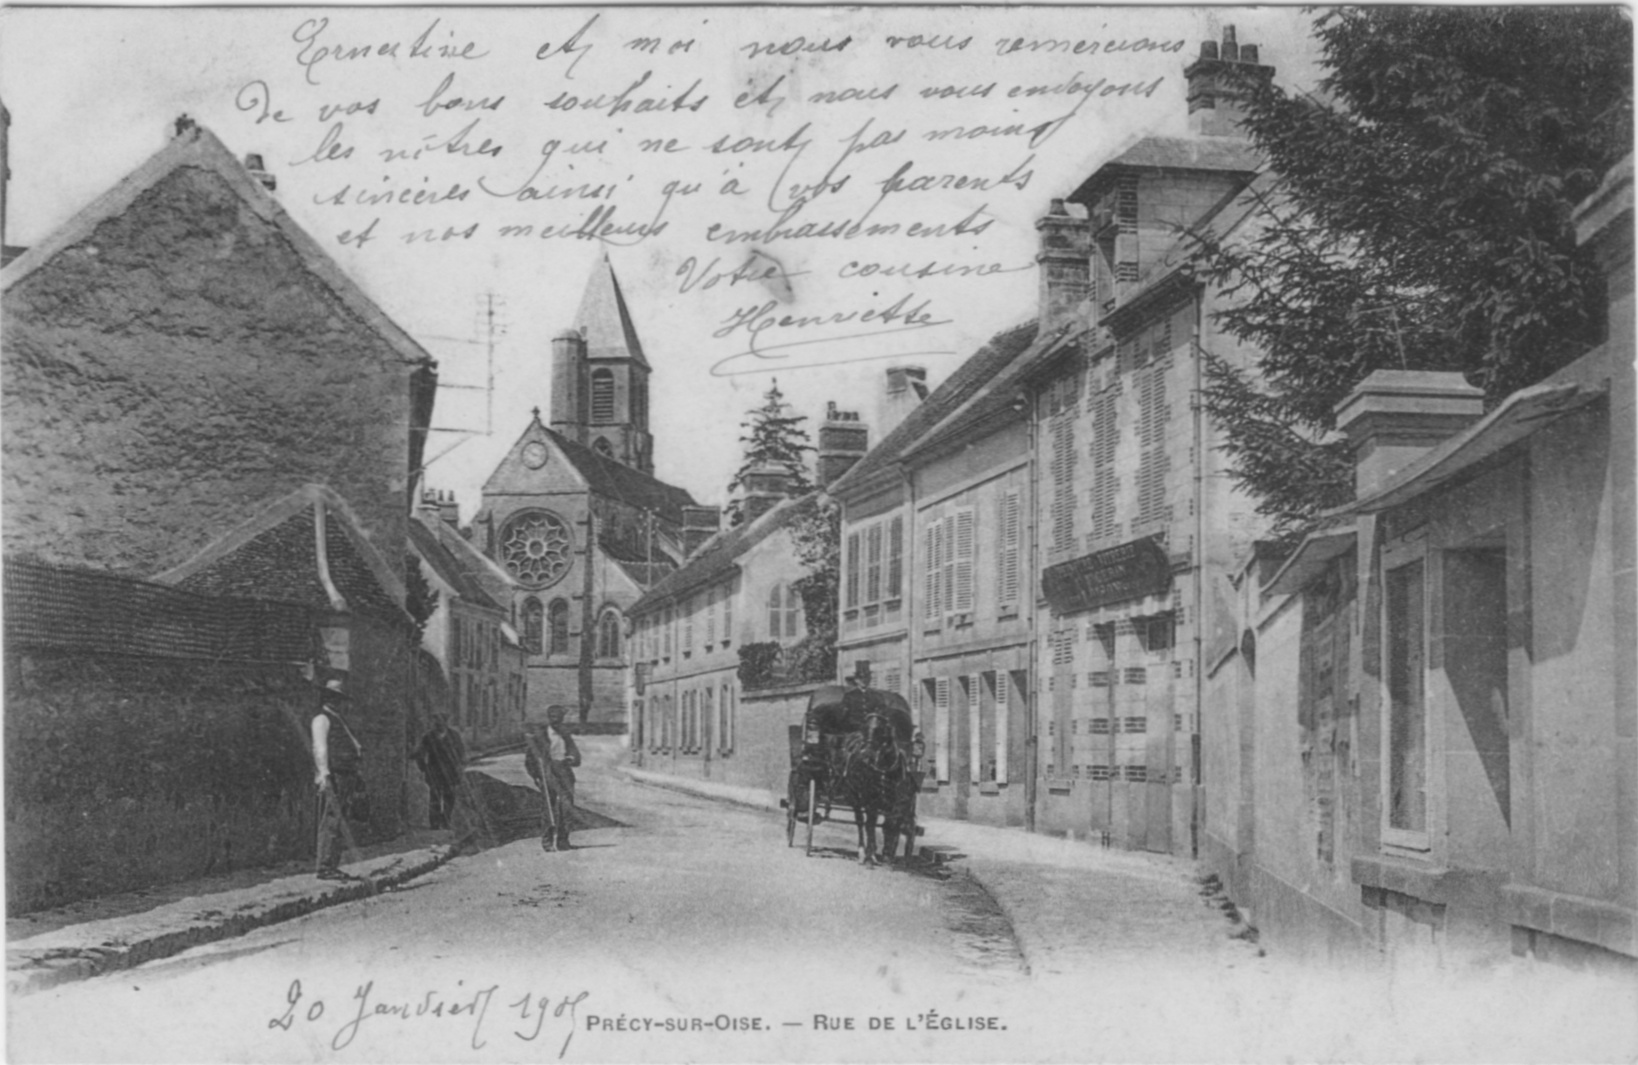 Ernestine et moi nous vous remercions
De vos bons souhaits et nous vous envoyons
les nôtres qui ne sont pas moins
sincères ainsi qu'à vos parents
et nos meilleurs embrassements
Votre cousine
Henriette
20 Janvier 1905
PRÉCY-SUR-OISE. — RUE DE L'ÉGLISE.